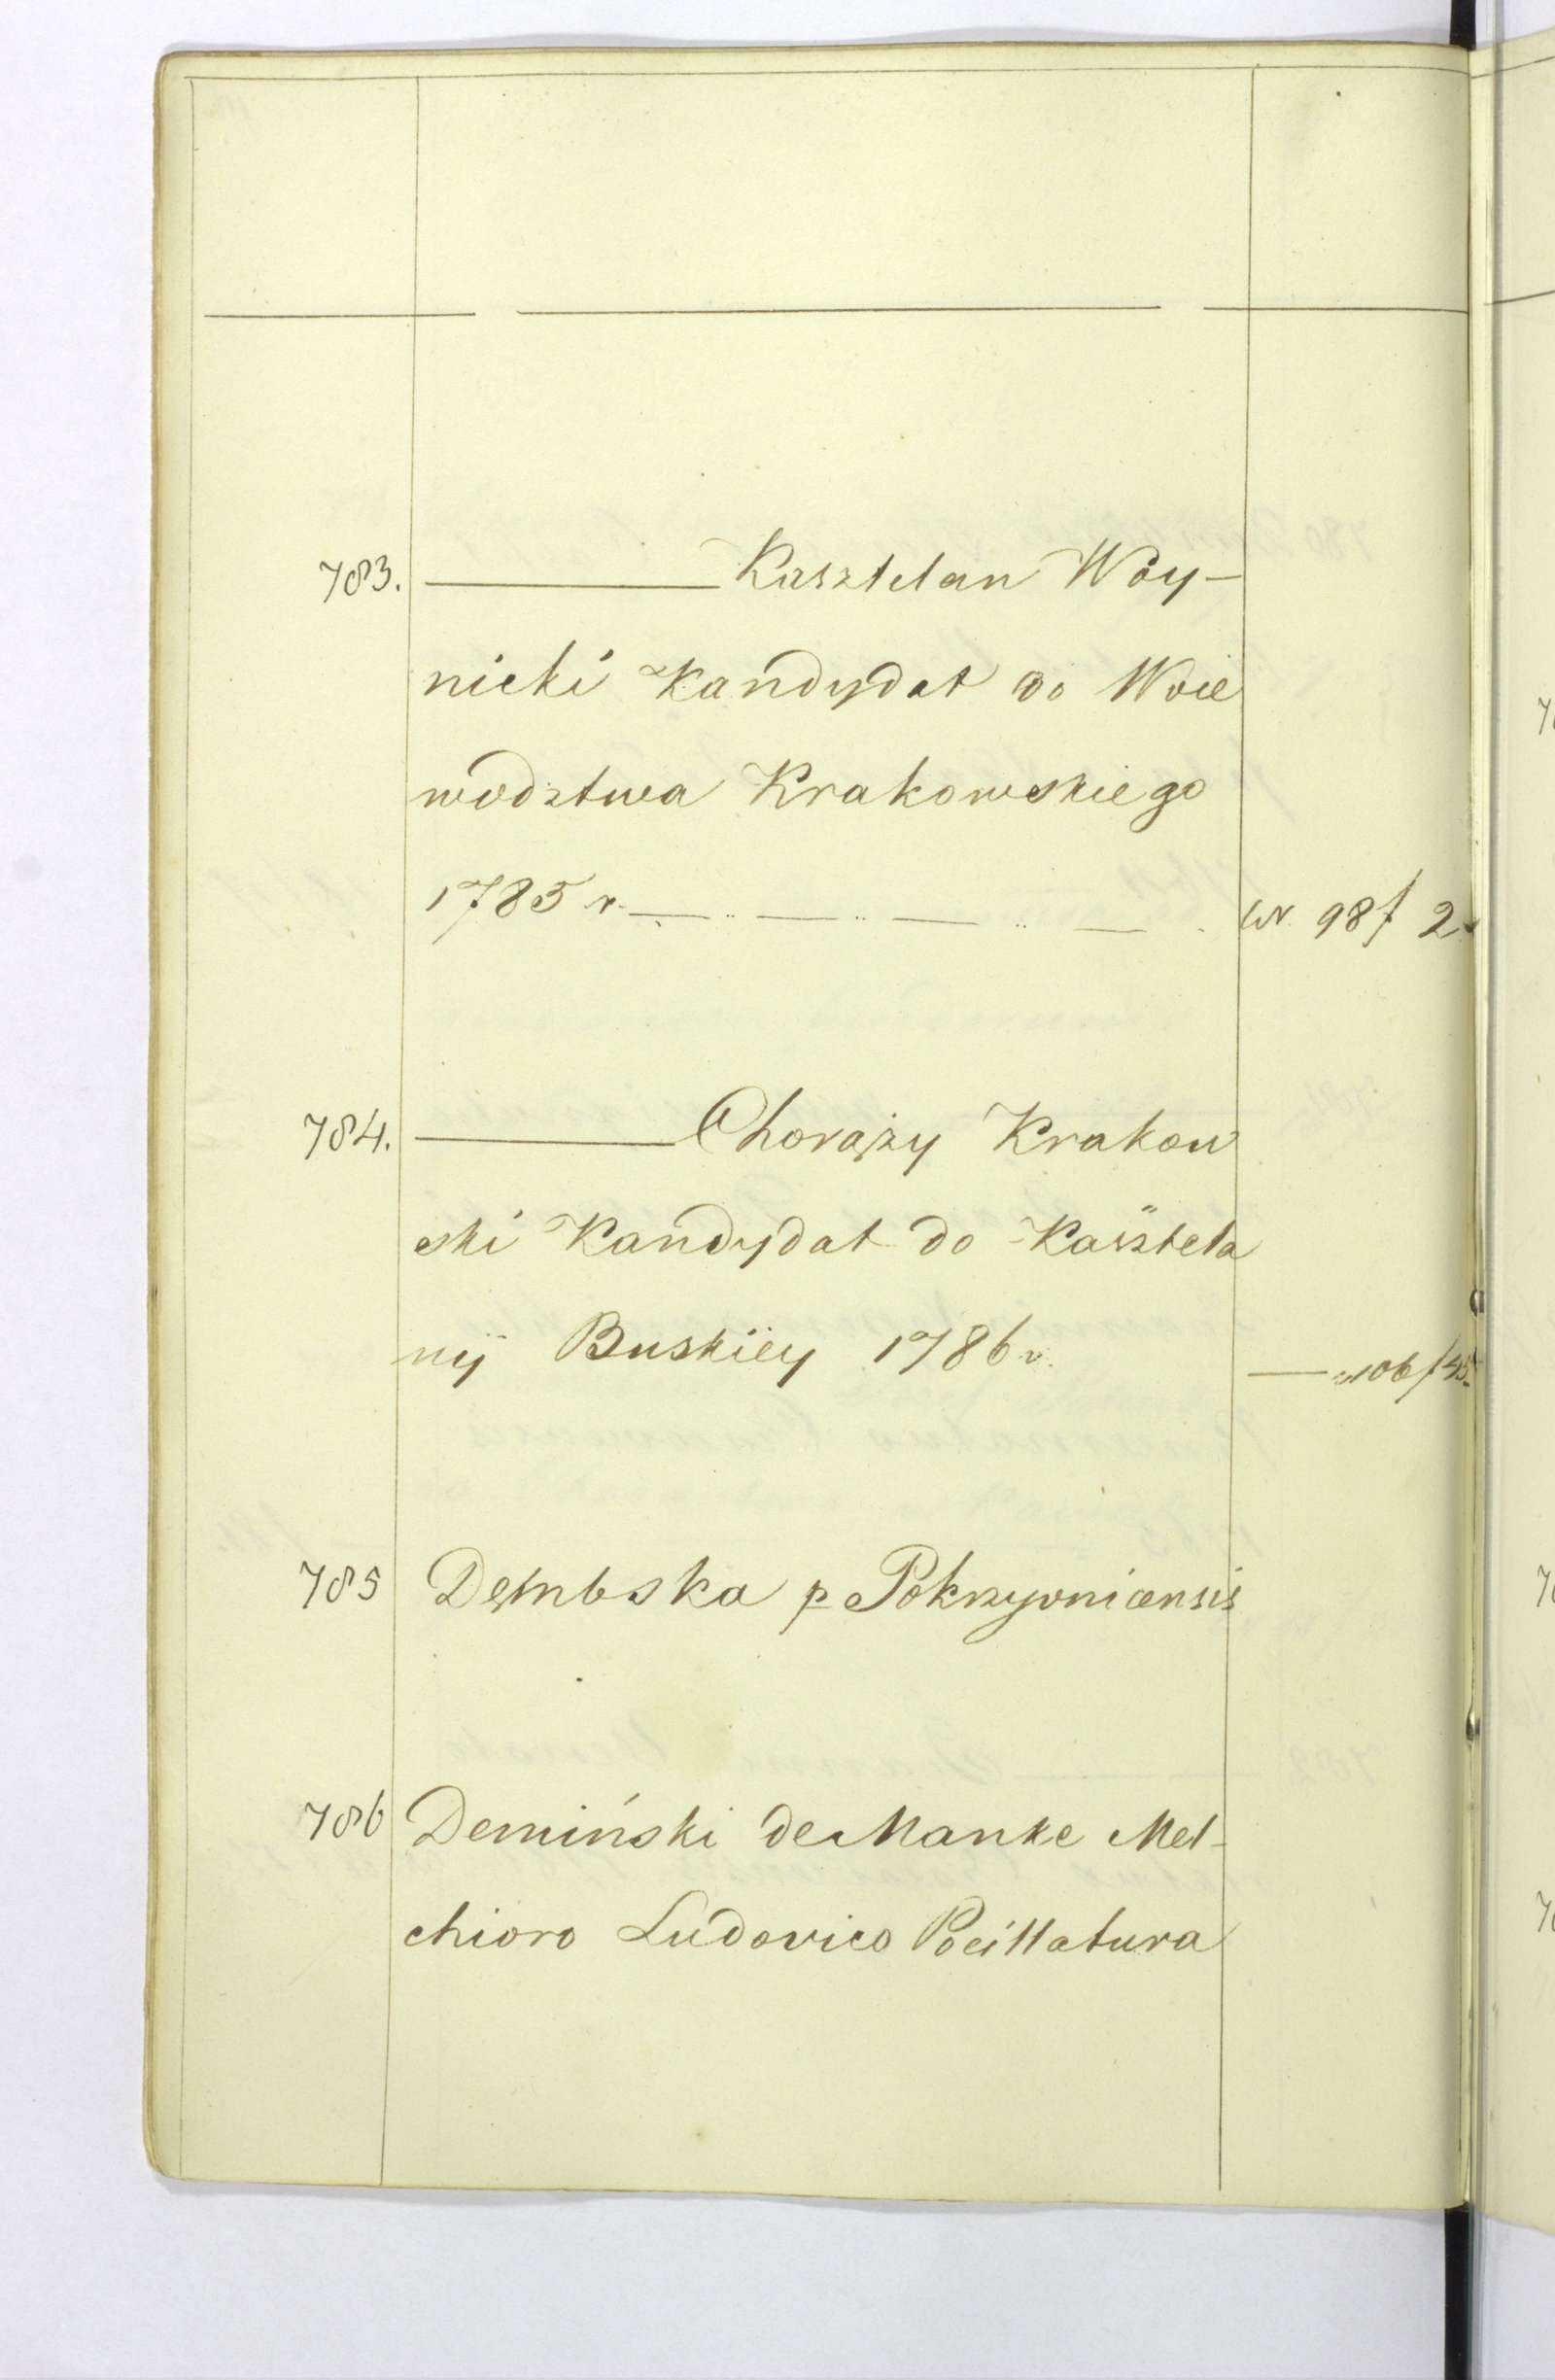 783. ——— Kasztelan Woy-
nicki Kandydat do Woie
wodztwa Krakowskiego
1785 r. — .. — .. — .. — . W. 98 f 2.
784. ——— Chorąży Krakow
ski Kandydat do Kasztela
nij Buskiey 1786 r. — 106 f 45.
785 Dembska p Pokrzywnicensis
786 Demiński de Manke Mel-
chioro Ludovico Pocillatura